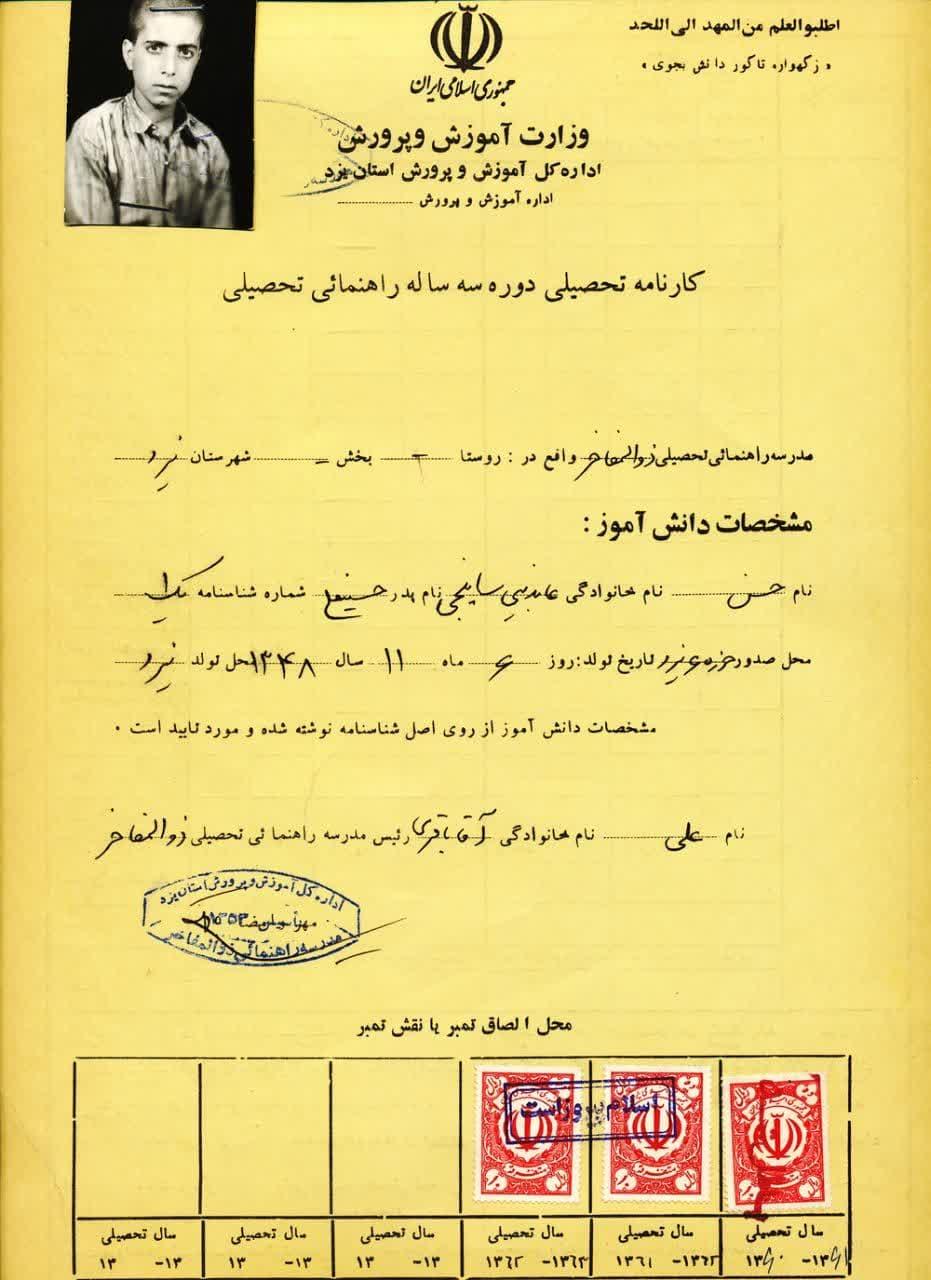 اطلبو العلم من المهد الی اللحد
« ز گهواره تا گور دانش بجوی »
جمهوری اسلامی ایران
وزارت آموزش و پرورش
اداره کل آموزش و پرورش استان یزد
اداره آموزش و پرورش
کارنامه تحصیلی دوره سه ساله راهنمائی تحصیلی
مدرسه راهنمائی تحصیلی ذوالمفاخر واقع در : روستا - بخش - شهرستان یزد
مشخصات دانش آموز :
نام حسن نام خانوادگی نام پدر شماره شناسنامه
محل صدور تاریخ تولد: روز ۶ ماه ۱۱ سال ۱۳۴۸ محل تولد یزد
مشخصات دانش آموز از روی اصل شناسنامه نوشته شده و مورد تایید است .
نام علی نام خانوادگی آقا باقری رئیس مدرسه راهنمائی تحصیلی ذوالمفاخر
اداره کل آموزش و پرورش استان یزد
مدرسه راهنمائی ذوالمفاخر
محل الصاق تمبر یا نقش تمبر
سال تحصیلی سال تحصیلی سال تحصیلی سال تحصیلی سال تحصیلی سال تحصیلی
۱۳۶۰ -۱۳۶۱ ۱۳۶۱ -۱۳۶۲ ۱۳۶۲ -۱۳۶۳ ۱۳ -۱۳ ۱۳ -۱۳ ۱۳ -۱۳